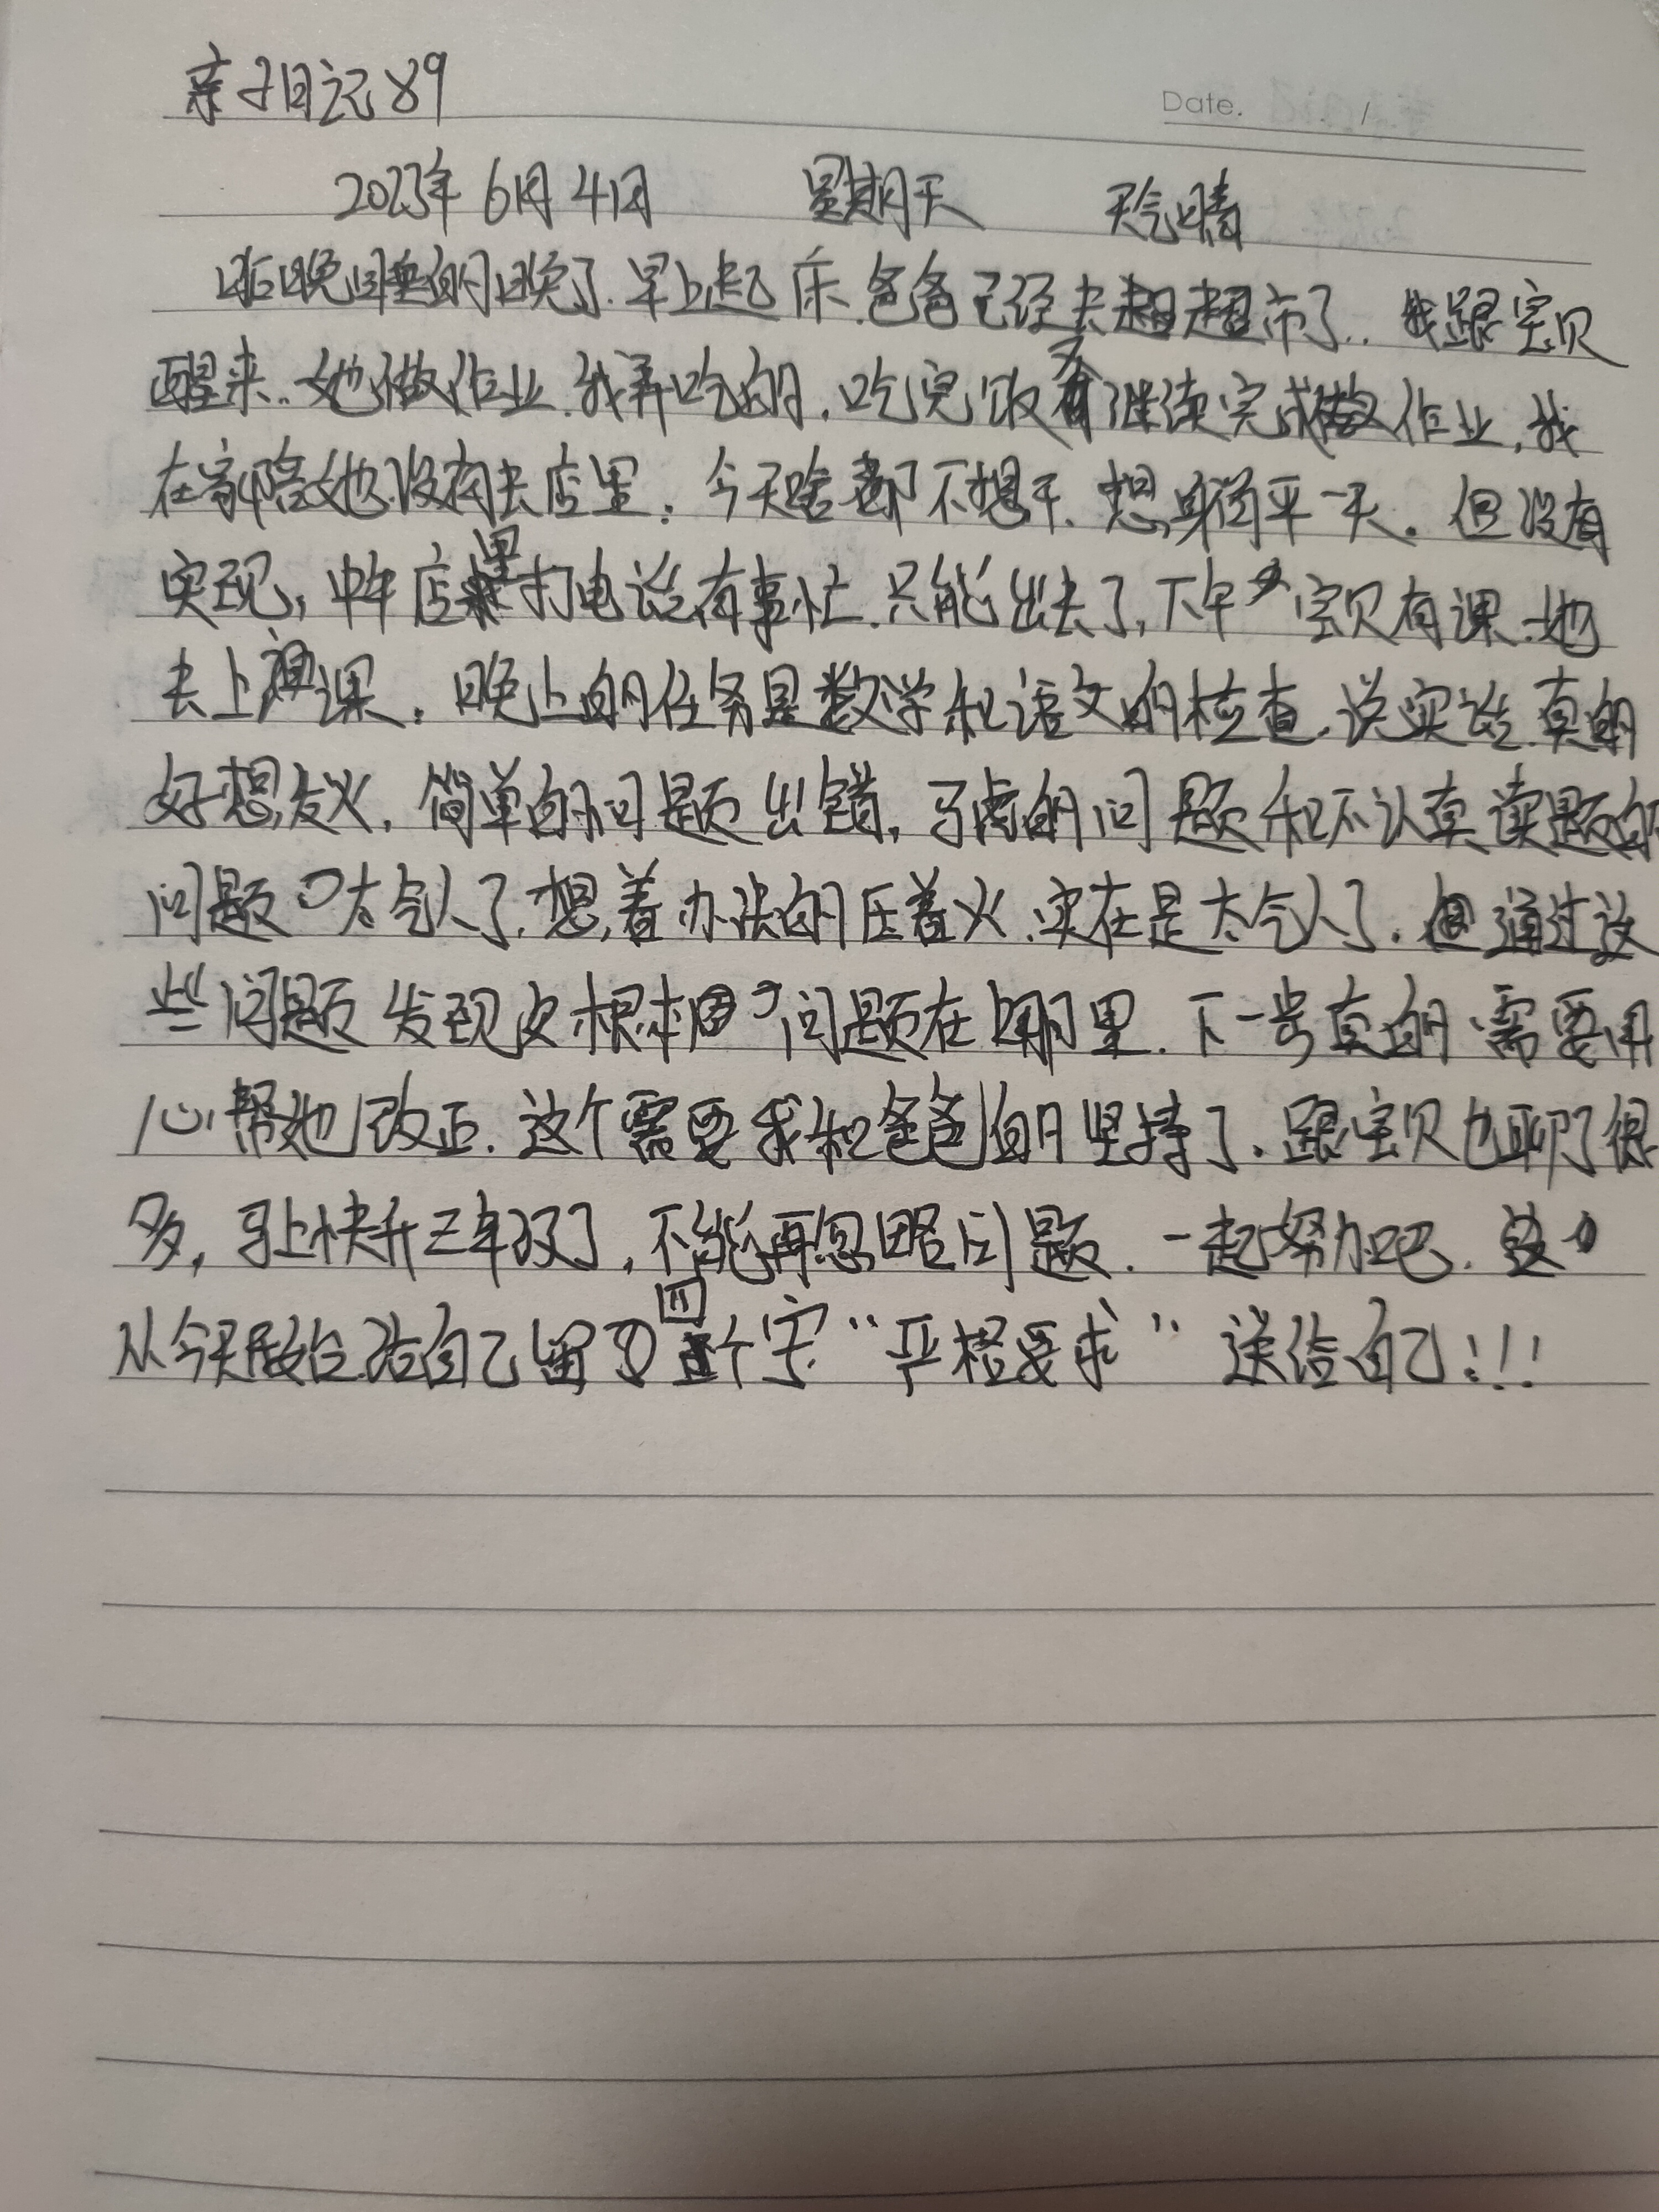 亲子日记89
Date. /
2023年6月4日 星期天 天气晴
昨晚睡的晚了.早上起床.爸爸已经去超市了..我跟宝贝
醒来..她做作业.我弄吃的.吃完饭继续完成作业,我
在家陪她.没有去店里.今天啥都不想干.想躺平一天.但没有
实现,中午店里打电话有事忙.只能出去了,下午宝贝有课.她
去上课.晚上的任务是数学和语文的检查.说实话.真的
好想发火.简单的问题出错,马虎的问题和不认真读题的
问题太气人了.想着办法的压着火.实在是太气人了.但通过这
些问题发现根本问题在哪里.下一步真的需要用
心帮她改正.这个需要我和爸爸的坚持了.跟宝贝也聊了很
多,马上快升三年级了,不能再忽略问题.一起努力吧.
从今天开始.给自己留了四个字“严格要求”送给自己!!!